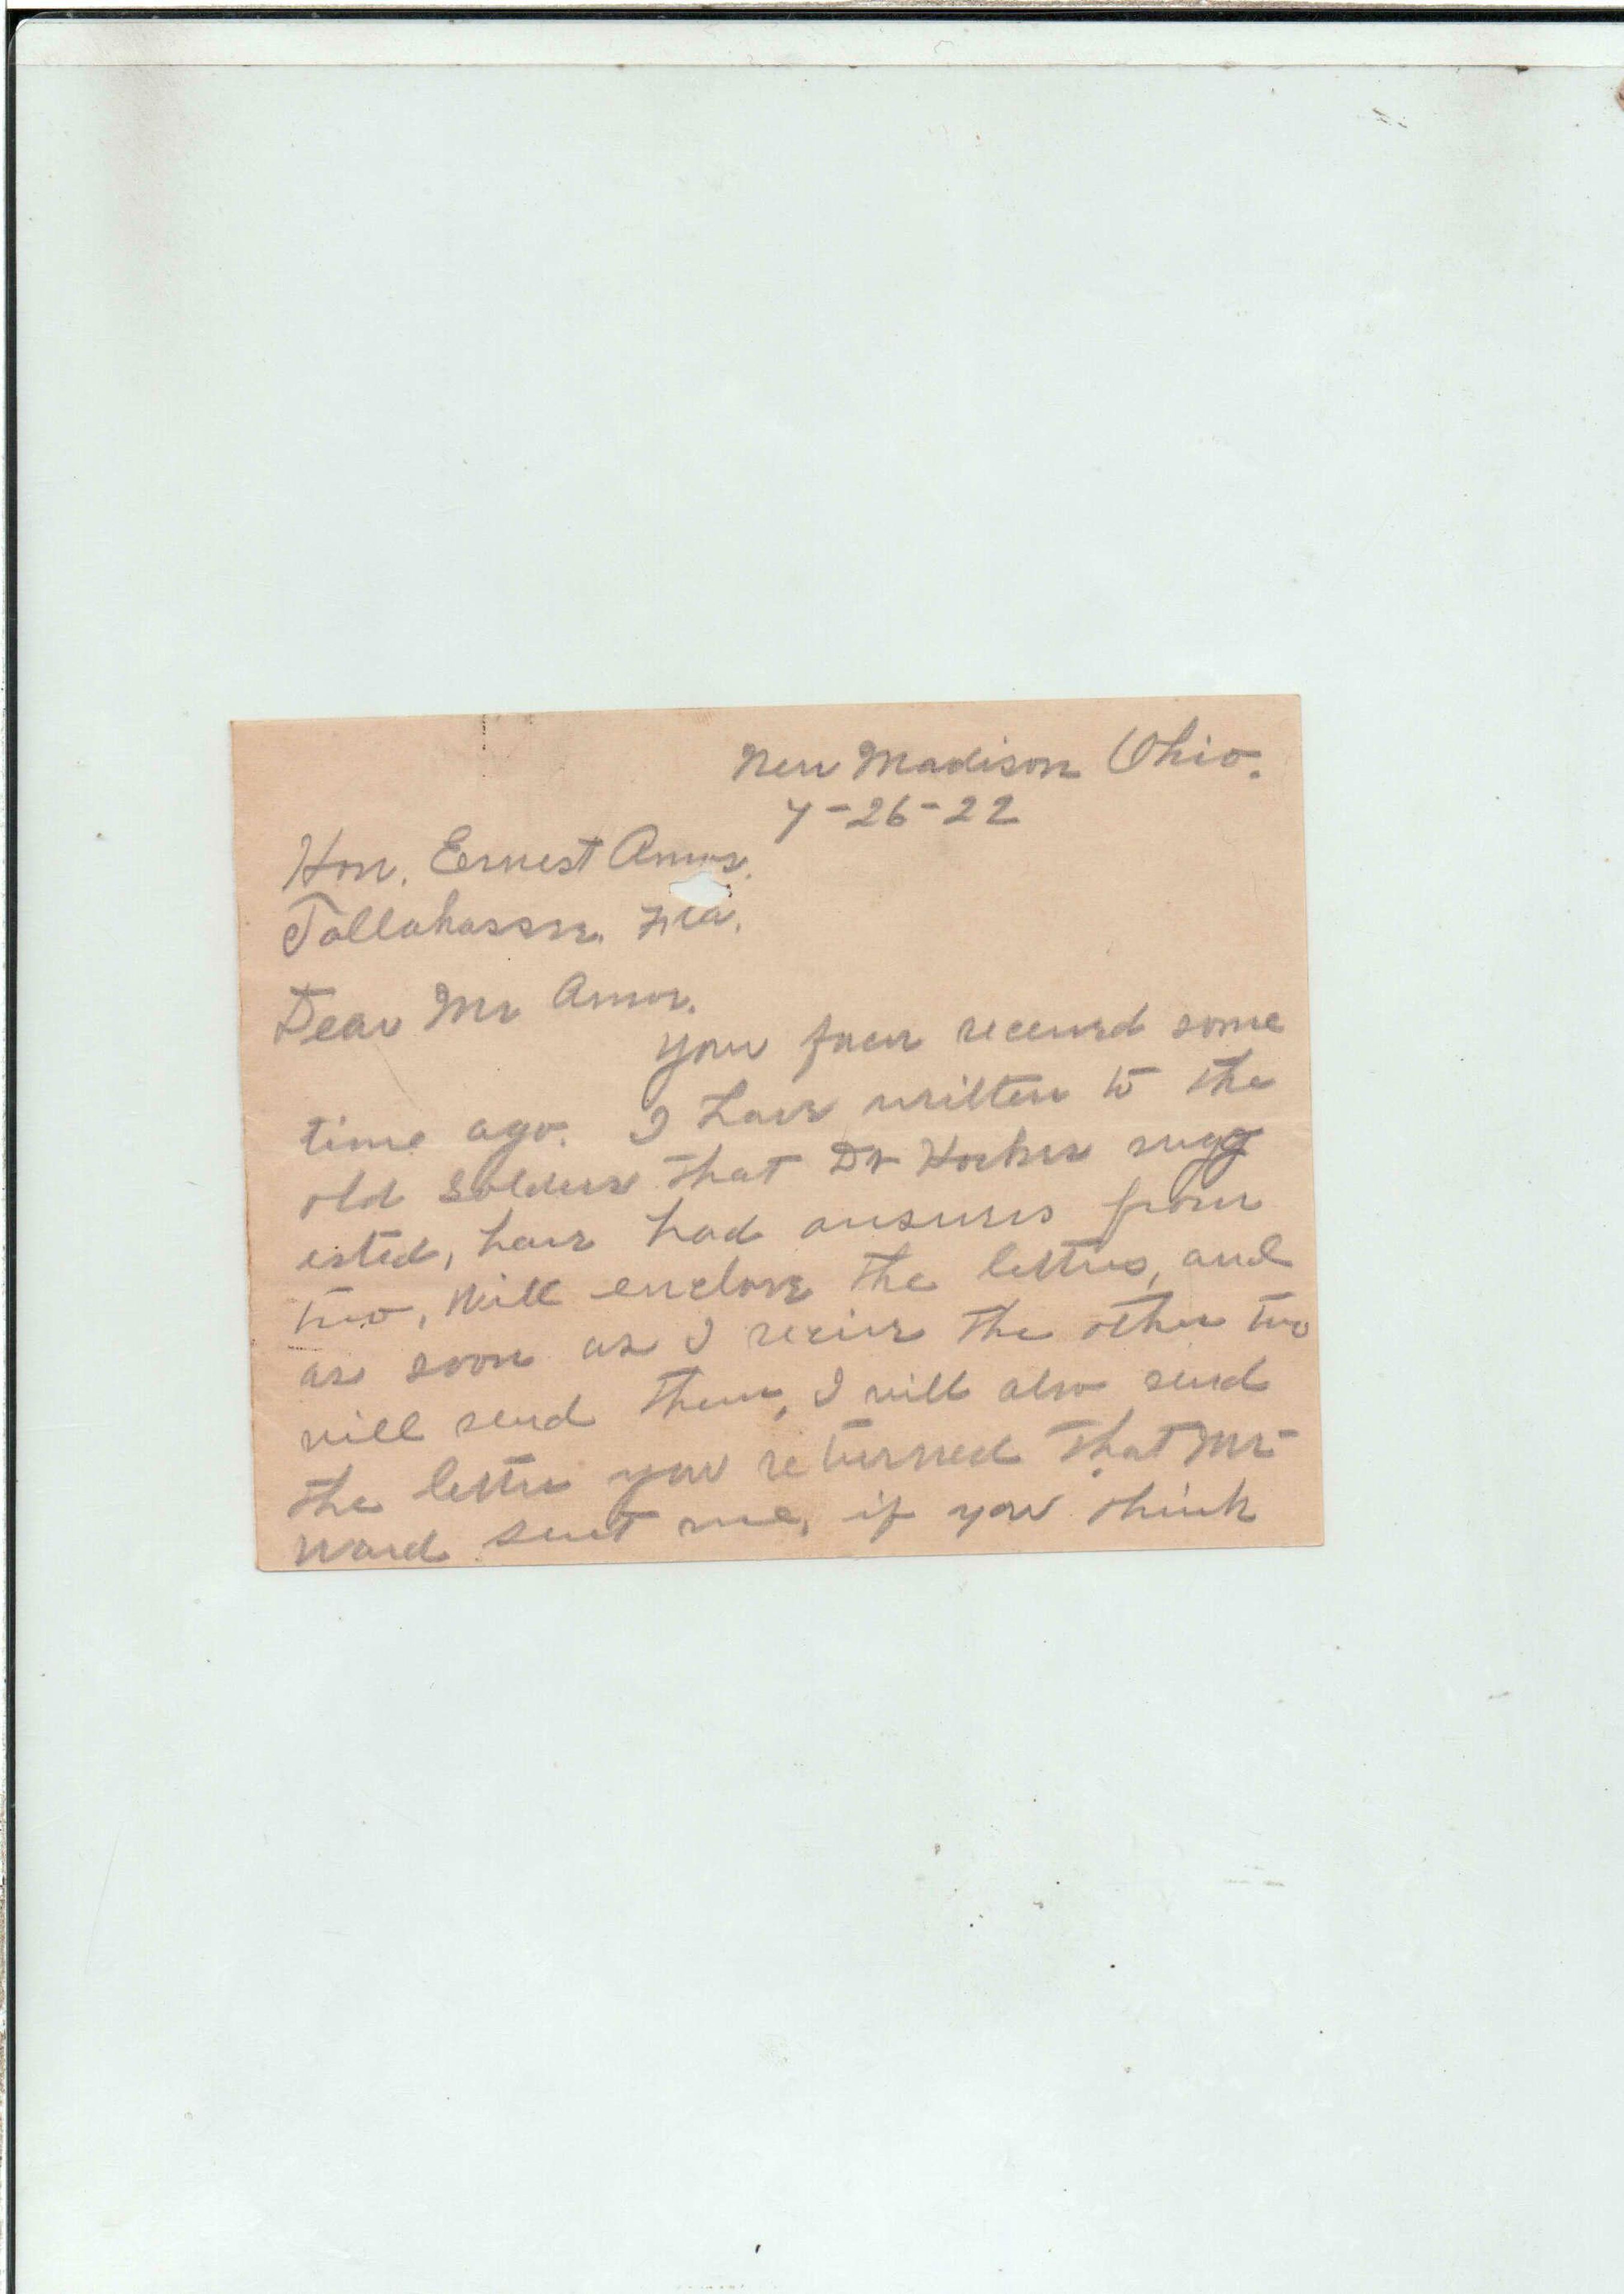 New Madison Ohio.
7-26-22
Hon. Ernest Amos.
Tallahassee. Fla.
Dear Mr Amos.
Your favor received some
time ago. I have written to the
old soldiers that Dr Hocker sugg
ested, have had answers from
two, will enclose the letters, and
as soon as I receive the other two
will send them, I will also send
the letter you returned that Mr
Ward sent me, if you think